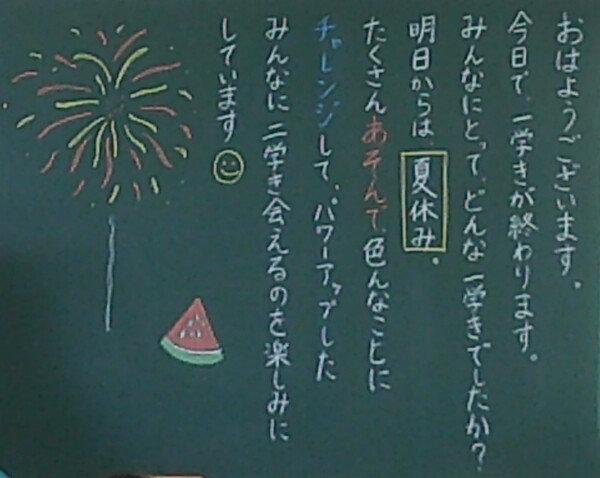 おはようございます。
今日で、一学きが終わります。
みんなにとって、どんな一学きでしたか？
明日からは、夏休み。
たくさんあそんで、色んなことに
チャレンジして、パワーアップした
みんなに二学き会えるのを楽しみに
しています